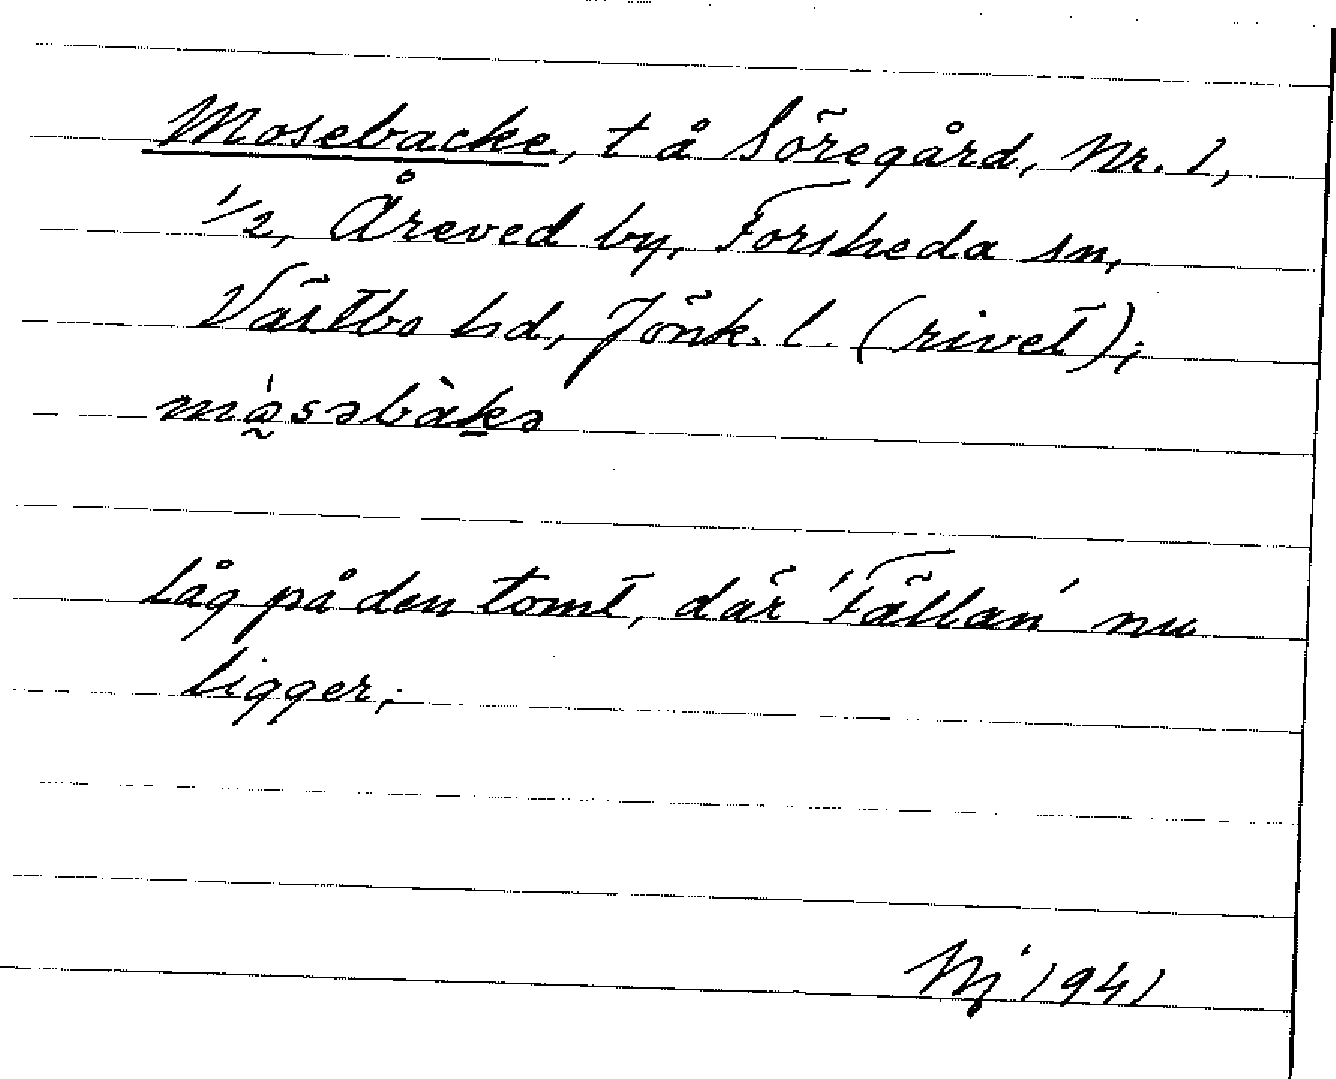 Mosebacke, t å Söregård, Nr. 1,
1/2, Åreved by, Forsheda sn,
Västbo hd, Jönk. l. (rivet);
må̰ssəbàkə
Låg på den tomt, där 'Fällan' nu
ligger;
Nj 1941